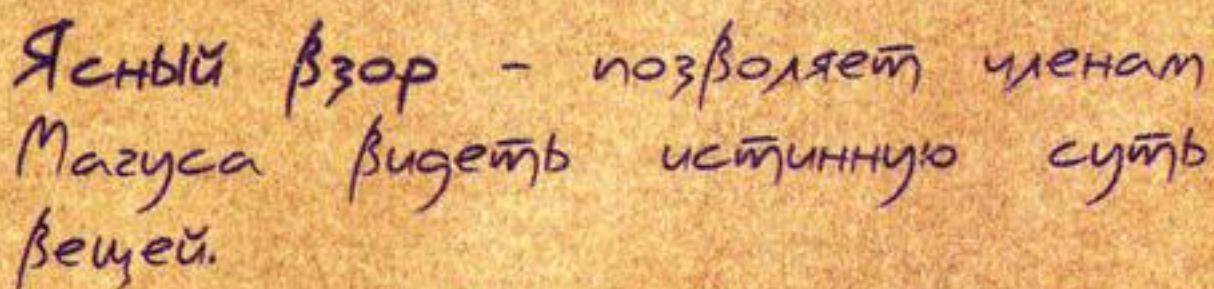 Ясный взор - позволяет членам
Магуса видеть истинную суть
вещей.